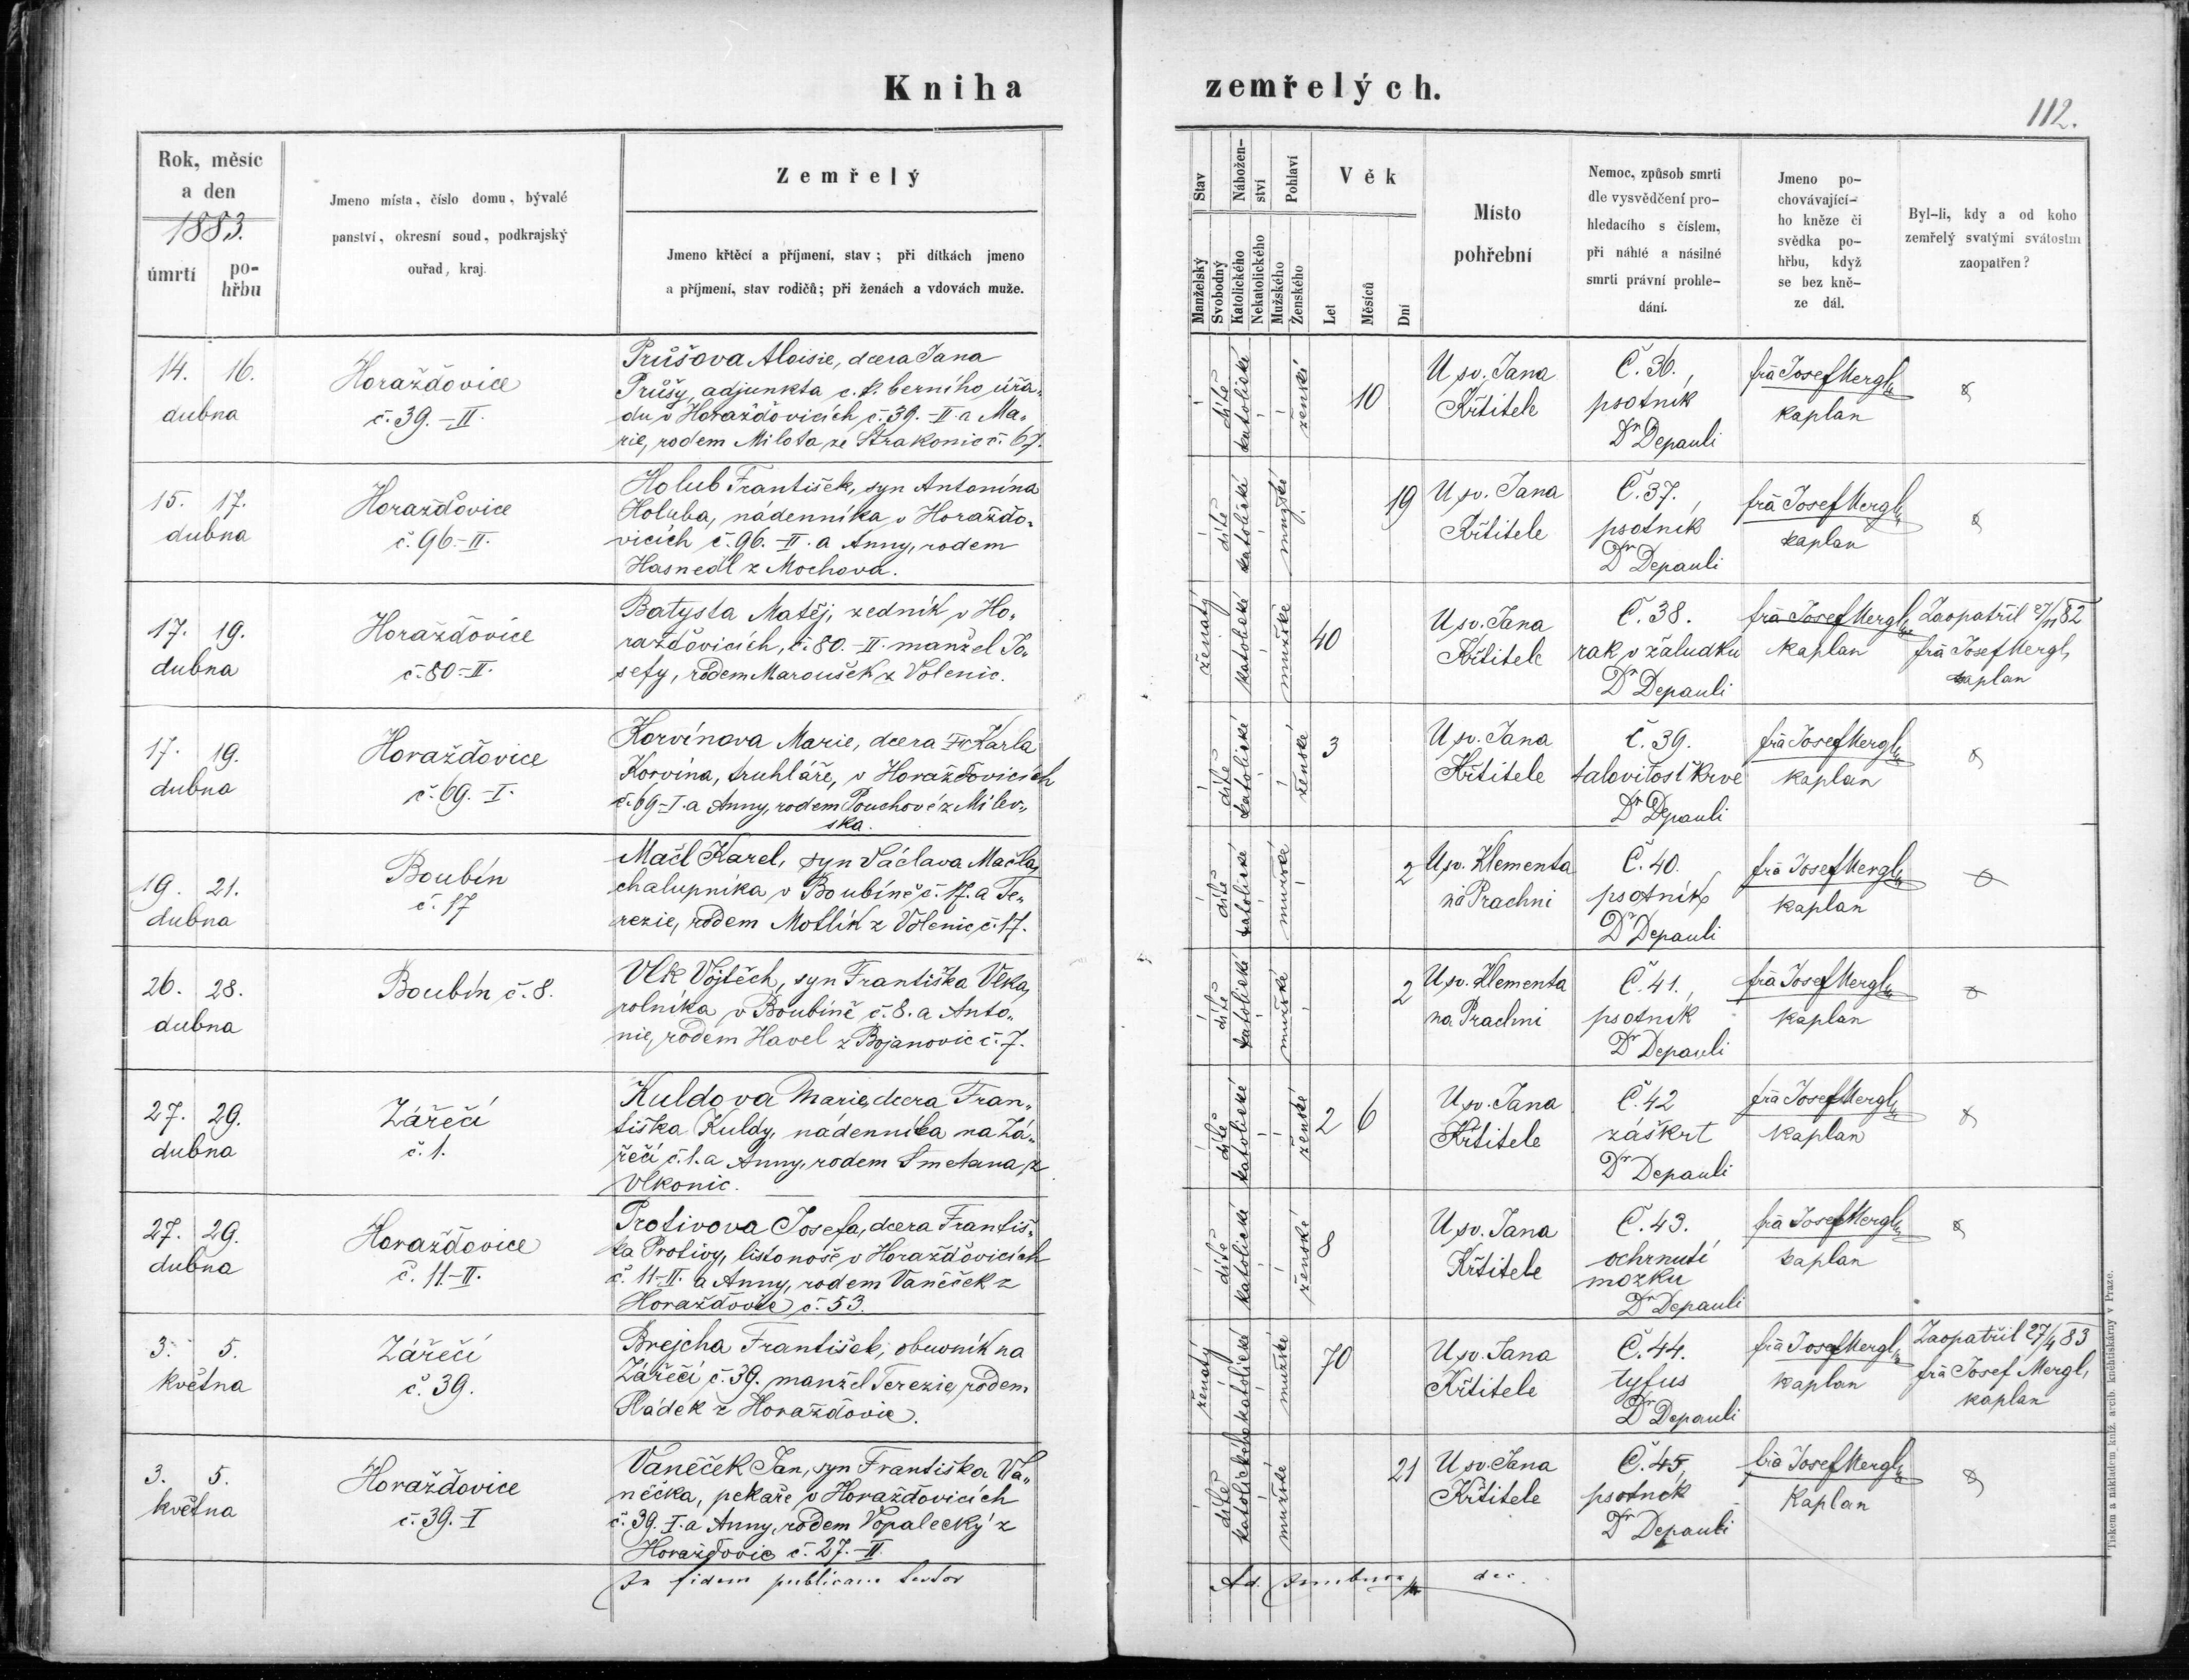 Kniha zemřelých.
112.
Rok, měsíc
a den
1883.
úmrtí
po-
hřbu
Jmeno místa, číslo domu, bývalé
panství, okresní soud, podkrajský
ouřad, kraj.
Zemřelý
Jmeno křtěcí a příjmení, stav; při dítkách jmeno
a příjmení, stav rodičů; při ženách a vdovách muže.
Stav
Manželský
Svobodný
Nábožen-
ství
Katolického
Nekatolického
Pohlaví
Mužského
Ženského
Věk
Let
Měsíců
Dní
Místo
pohřební
Nemoc, způsob smrti
dle vysvědčení pro-
hledacího s číslem,
při náhlé a násilné
smrti právní prohle-
dání.
Jmeno po-
chovávající-
ho kněze či
svědka po-
hřbu, když
se bez kně-
ze dál.
Byl-li, kdy a od koho
zemřelý svatými svátostmi
zaopatřen?
14. 16.
dubna
Horažďovice
č. 39.-II.
Průšova Aloisie, dcera Jana
Průšy, adjunkta c. k. berního úřa-
du v Horažďovicích č. 39.-II. a Ma-
rie, rodem Milota ze Strakonic č. 67.
dítě
katolické
ženské
10
U sv. Jana
Křtitele
Č. 36.,
psotník
Dr Depauli
frà Josef Mergl
kaplan
15. 17.
dubna
Horažďovice
č. 96.-II.
Holub František, syn Antonína
Holuba, nádenníka v Horažďo-
vicích č. 96.-II. a Anny, rodem
Hasnedl z Mochova.
dítě
katolické
mužské
19
U sv. Jana
Křtitele
Č. 37.,
psotník
Dr Depauli
frà Josef Mergl
kaplan
17. 19.
dubna
Horažďovice
č. 80.-II.
Batysta Matěj, zedník v Ho-
ražďovicích, č. 80.-II. manžel Jo-
sefy, rodem Maroušek z Volenic.
ženatý
katolické
mužské
40
U sv. Jana
Křtitele
Č. 38.
rak v žaludku
Dr Depauli
frà Josef Mergl
kaplan
Zaopatřil 82
frà Josef Mergl,
kaplan
17. 19.
dubna
Horažďovice
č. 69.-I.
Korvínova Marie, dcera Karla
Korvína, truhláře, v Horažďovicích
č. 69-I. a Anny, rodem Pouchové z Milev-
ska.
dítě
katolické
ženské
3
U sv. Jana
Křtitele
Č. 39.
talovitost krve
Dr Depauli
frà Josef Mergl
kaplan
19. 21.
dubna
Boubín
č. 17
Mačl Karel, syn Václava Mačla,
chalupníka v Boubíně č. 17. a Te-
rezie, rodem Motlík z Volenic č. 17.
dítě
katolické
mužské
2
U sv. Klementa
na Prachni
Č. 40.
psotník
Dr Depauli
frà Josef Mergl
kaplan
26. 28.
dubna
Boubín č. 8.
Vlk Vojtěch, syn Františka Vlka,
rolníka v Boubíně č. 8. a Anto-
nie, rodem Havel z Bojanovic č. 7.
dítě
katolické
mužské
2
U sv. Klementa
na Prachni
Č. 41.,
psotník
Dr Depauli
frà Josef Mergl
kaplan
27. 29.
dubna
Zářečí
č. 1.
Kuldova Marie, dcera Fran-
tiška Kuldy, nádenníka na Zá-
řečí č. 1. a Anny, rodem Smetana, z
Vlkonic.
dítě
katolické
ženské
2 6
U sv. Jana
Křtitele
Č. 42
záškrt
Dr Depauli
frà Josef Mergl
kaplan
27. 29.
dubna
Horažďovice
č. 11-II.
Protivova Josefa, dcera Františ-
ka Protivy, listonoše v Horažďovicích
č. 11-II. a Anny, rodem Vaněček z
Horažďovic č. 53.
dítě
katolické
ženské
8
U sv. Jana
Křtitele
Č. 43.
ochrnutí
mozku
Dr Depauli
frà Josef Mergl
kaplan
3. 5.
května
Zářečí
č. 39.
Brejcha František, obuvník na
Zářečí č. 39. manžel Terezie, rodem
Sládek z Horažďovic.
ženatý
katolické
mužské
70
U sv. Jana
Křtitele
Č. 44.
tyfus
Dr Depauli
frà Josef Mergl
kaplan
Zaopatřil 27/4 83
frà Josef Mergl,
kaplan
3. 5.
května
Horažďovice
č. 39.-I
Vaněček Jan, syn Františka Va-
něčka, pekaře v Horažďovicích
č. 39. I. a Anny, rodem Vopalecký z
Horažďovic č. 27.-II.
dítě
katolického
mužské
21
U sv. Jana
Křtitele
Č. 45,
psotník
Dr Depauli
frà Josef Mergl
Kaplan
In fidem publicam testor
dec.
Tiskem a nákladem kníž. arcib. knihtiskárny v Praze.